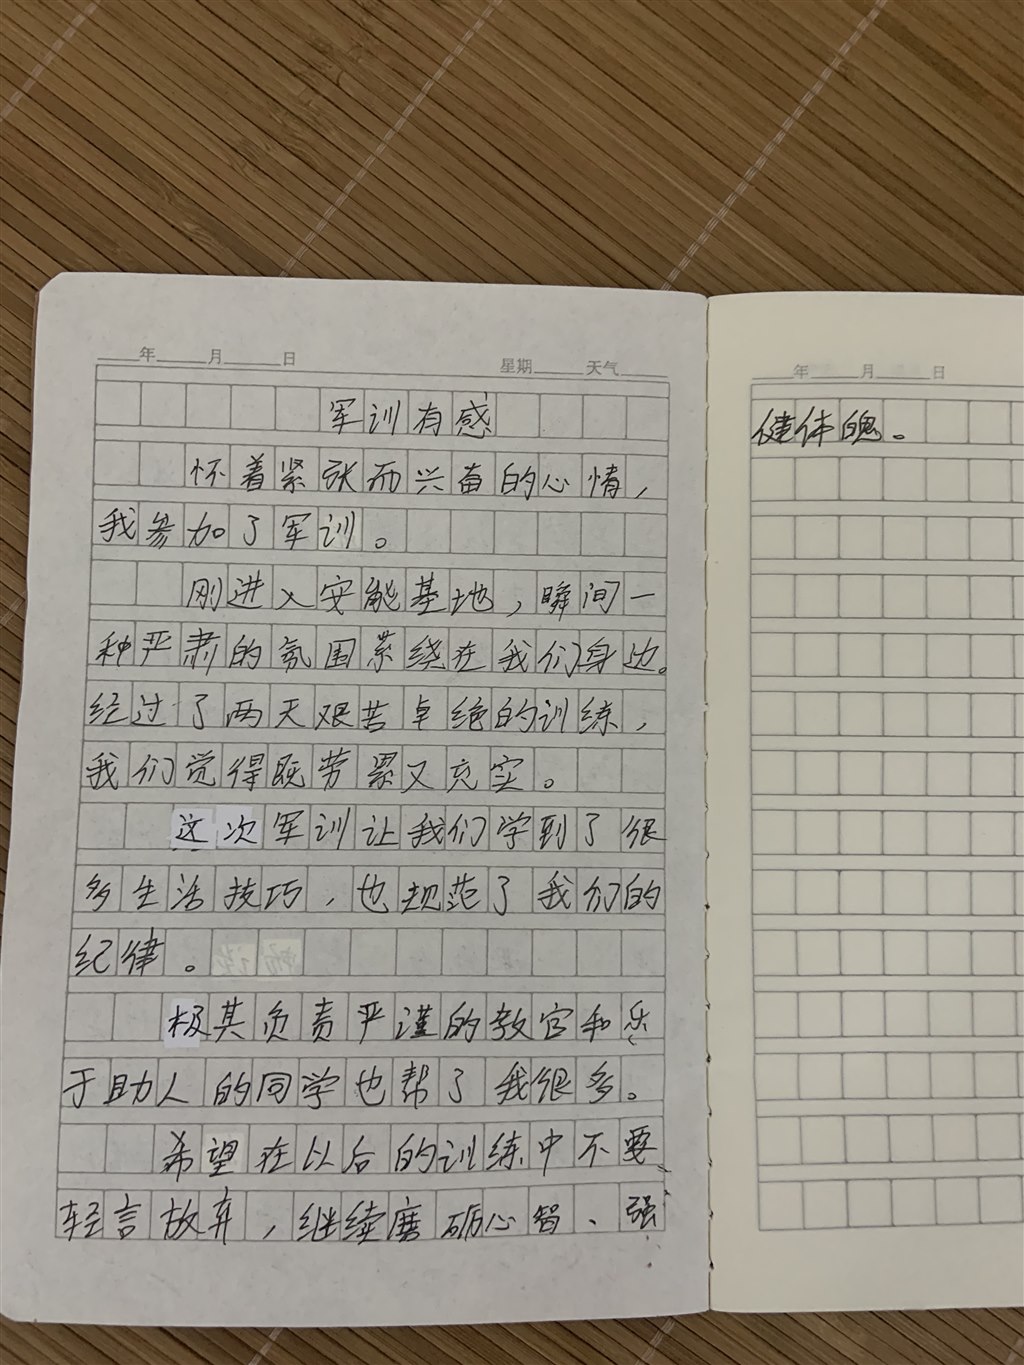 年 月 日 星期 天气
军训有感
怀着紧张而兴奋的心情，
我参加了军训。
刚进入安能基地，瞬间一
种严肃的氛围萦绕在我们身边。
经过了两天艰苦卓绝的训练，
我们觉得既劳累又充实。
这次军训让我们学到了很
多生活技巧，也规范了我们的
纪律。
极其负责严谨的教官和乐
于助人的同学也帮了我很多。
希望在以后的训练中不要
轻言放弃，继续磨砺心智、强
年 月 日
健体魄。